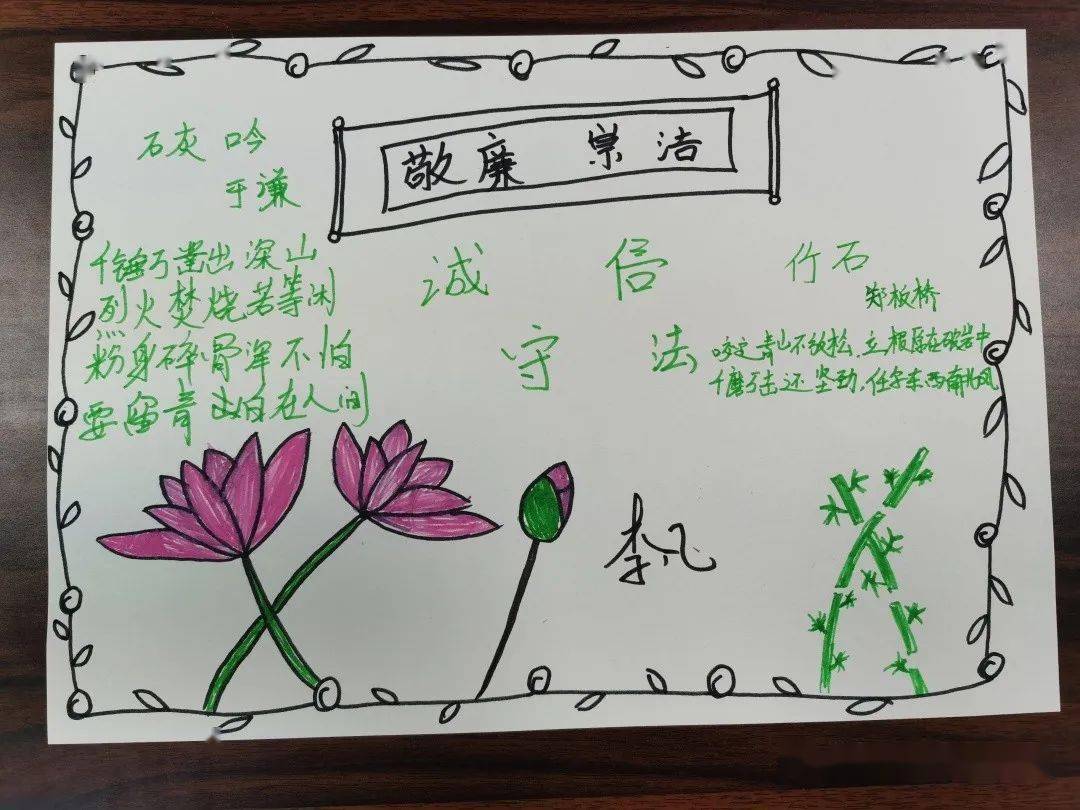 敬廉 崇洁
石灰吟
于谦
千锤万凿出深山
烈火焚烧若等闲
粉身碎骨浑不怕
要留青白在人间
诚信
守法
竹石
郑板桥
咬定青山不放松,立根原在破岩中
千磨万击还坚劲,任尔东西南北风
李凡